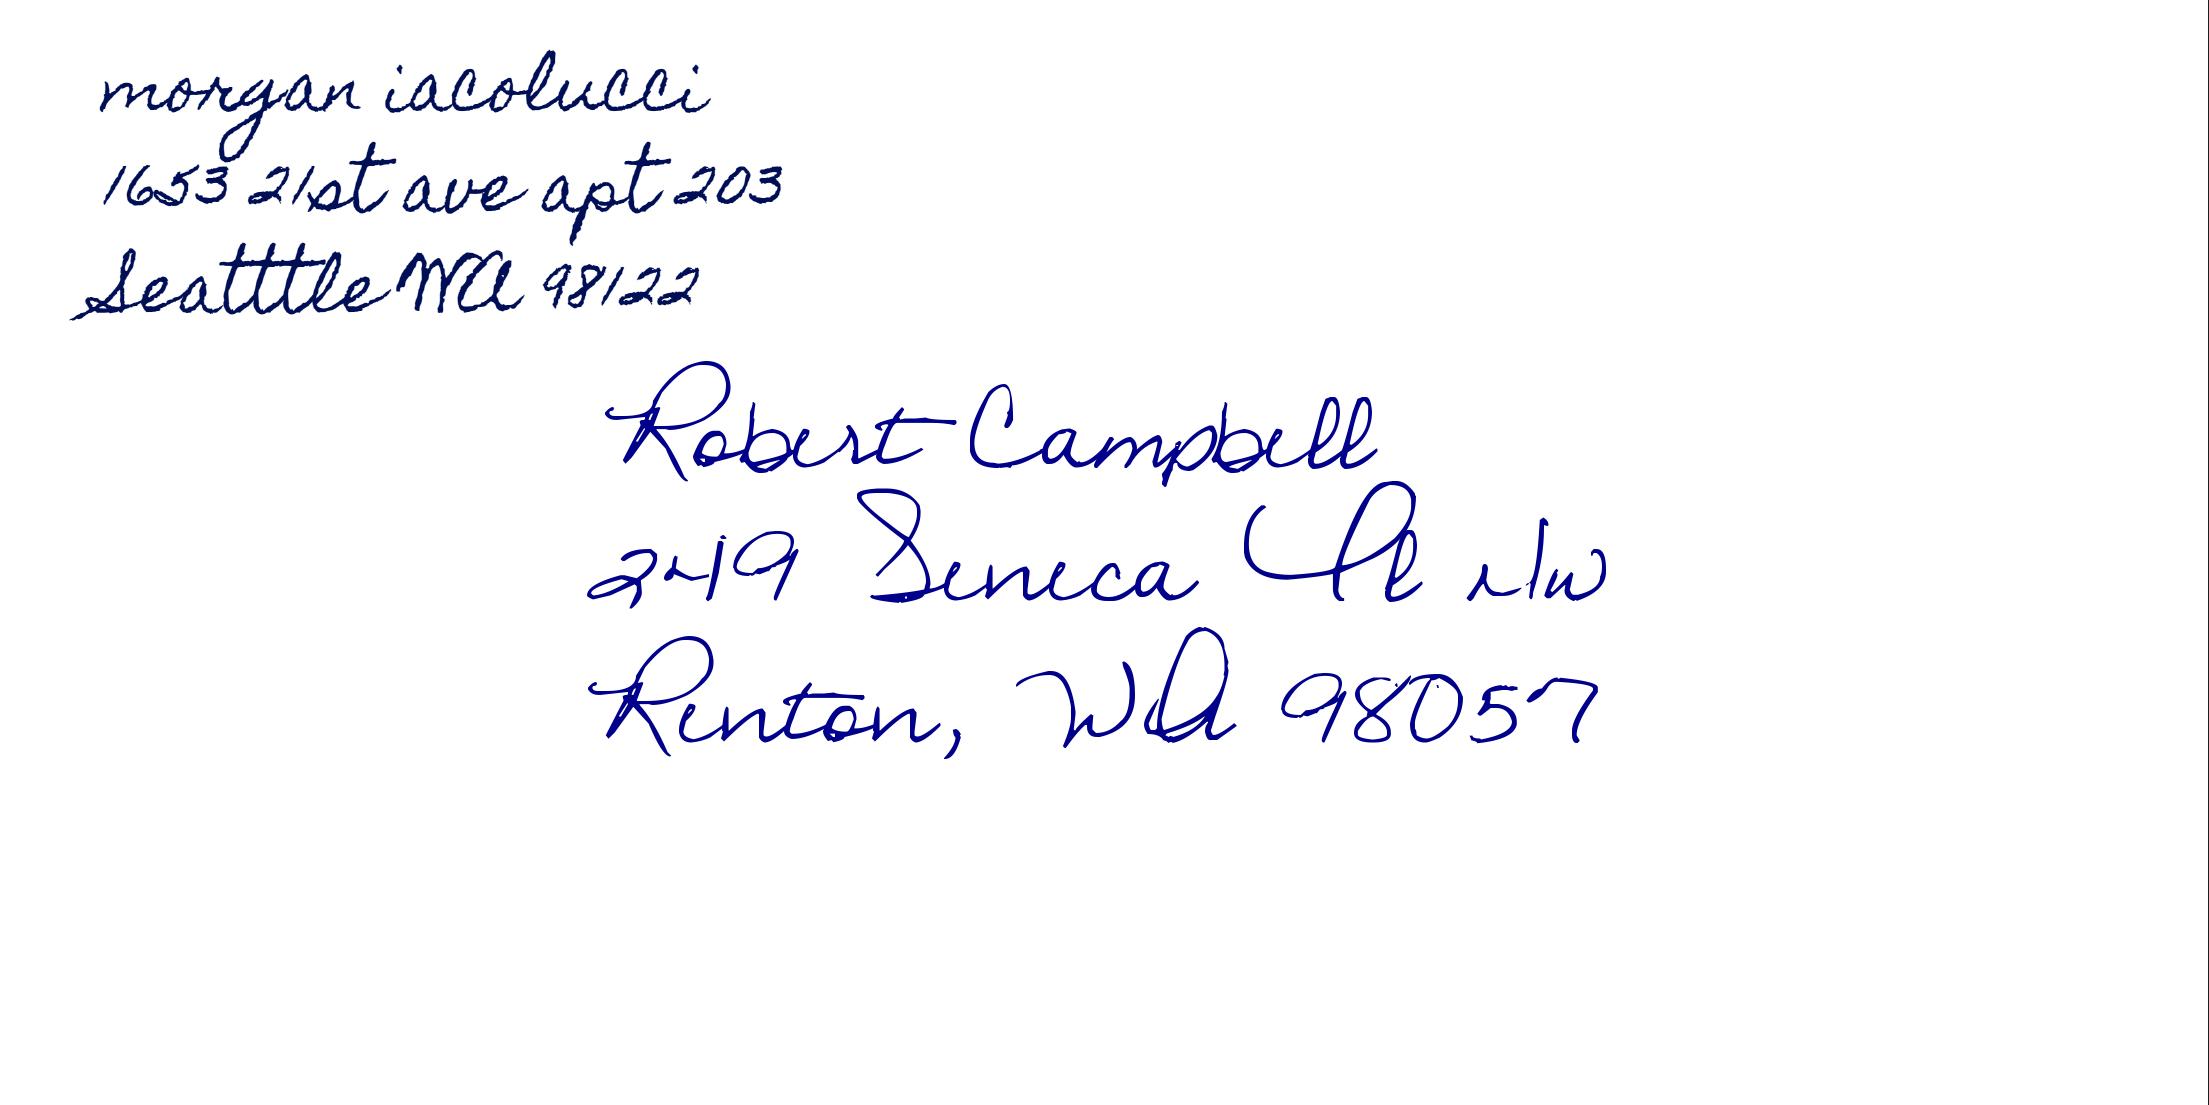 morgan iacolucci
1653 21st ave apt 203
Seatttle WA 98122
Robert Campbell
249 Seneca Pl NW
Renton, WA 98057